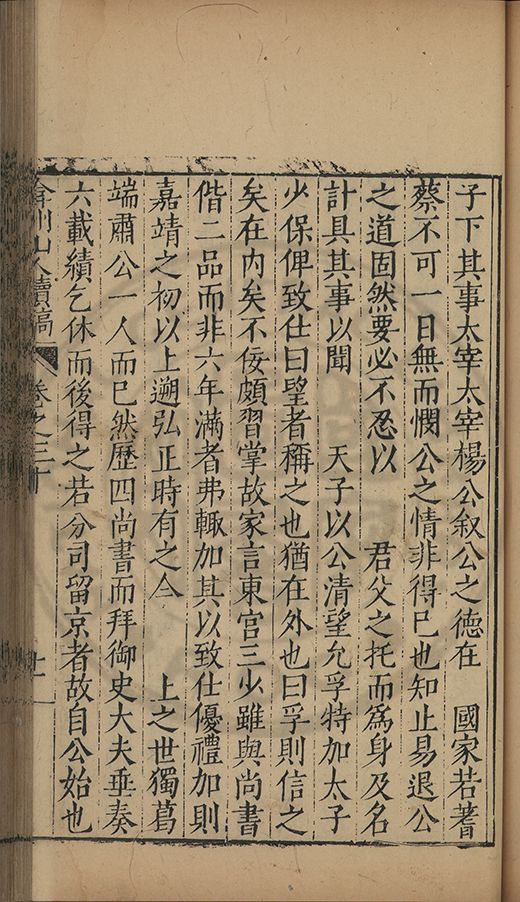 子下其事太宰太宰楊公叙公之德在　國家若蓍
蔡不可一日無而憫公之情非得已也知止易退公
之道固然要必不忍以　君父之托而爲身及名
計具其事以聞　天子以公清望允孚特加太子
少保俾致仕曰望者稱之也猶在外也曰孚則信之
矣在内矣不佞頗習掌故家言東宫三少雖與尚書
偕二品而非六年滿者弗輙加其以致仕優禮加則
嘉靖之初以上遡弘正時有之今　上之世獨葛
端肅公一人而已然歷四尚書而拜御史大夫垂奏
六載績乞休而後得之若分司留京者故自公始也
弇州山人續稿　卷之三十　十一